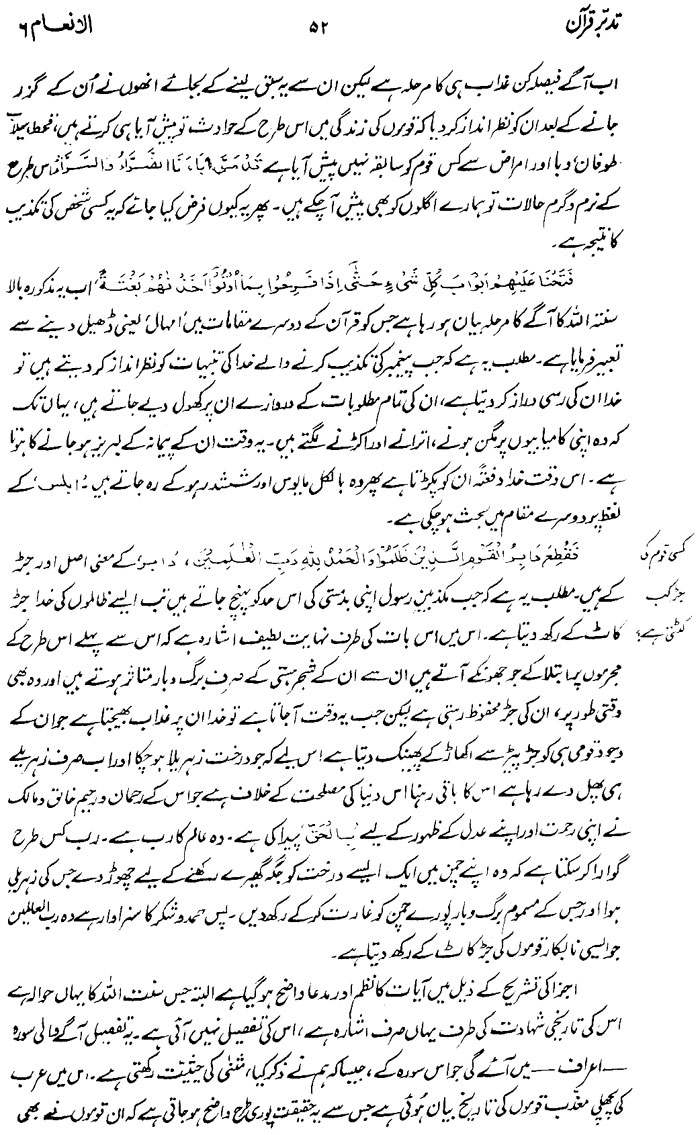 تدبر قرآن ۵۲ الانعام ۶
اب آگے فیصلہ کن عذاب ہی کا مرحلہ ہے لیکن ان سے یہ سبق لینے کے بجائے انھوں نے اُن کے گزر
جانے کے بعد ان کو نظر انداز کر دیا کہ قوموں کی زندگی میں اس طرح کے حوادث تو پیش آیا ہی کرتے ہیں، قحط، سیلاب
طوفان، وبا اور امراض سے کس قوم کو سابقہ نہیں پیش آیا ہے قَدْ مَسَّ اٰبَآءَنَا الضَّرَّآءُ وَالسَّرَّآءُ اس طرح
کے نرم و گرم حالات تو ہمارے اگلوں کو بھی پیش آ چکے ہیں۔ پھر یہ کیوں فرض کیا جائے کہ یہ کسی شخص کی تکذیب
کا نتیجہ ہے۔
فَتَحْنَا عَلَيْهِمْ اَبْوَابَ كُلِّ شَيْءٍ حَتّٰٓى اِذَا فَرِحُوْا بِمَآ اُوْتُوْٓا اَخَذْنٰهُمْ بَغْتَةً، اب یہ مذکورہ بالا
سنتہ اللہ کا آگے کا مرحلہ بیان ہو رہا ہے جس کو قرآن کے دوسرے مقامات میں 'امہال' یعنی ڈھیل دینے سے
تعبیر فرمایا ہے۔ مطلب یہ ہے کہ جب پیغمبر کی تکذیب کرنے والے خدا کی تنبیہات کو نظر انداز کر دیتے ہیں تو
خدا ان کی رسی دراز کر دیتا ہے، ان کی تمام مطلوبات کے دروازے ان پر کھول دیے جاتے ہیں، یہاں تک
کہ وہ اپنی کامیابیوں پر مگن ہونے، اترانے اور اکڑنے لگتے ہیں۔ یہ وقت ان کے پیمانہ کے لبریز ہو جانے کا ہوتا
ہے۔ اس وقت خدا دفعتہً ان کو پکڑتا ہے پھر وہ بالکل مایوس اور ششدر ہو کے رہ جاتے ہیں 'ابلس' کے
لفظ پر دوسرے مقام میں بحث ہو چکی ہے۔
کسی قوم کی
جڑ کب
کٹتی ہے؟
فَقُطِعَ دَابِرُ الْقَوْمِ الَّذِيْنَ ظَلَمُوْا وَالْحَمْدُ لِلّٰهِ رَبِّ الْعٰلَمِيْنَ، 'دابر' کے معنی اصل اور جڑ
کے ہیں۔ مطلب یہ ہے کہ جب مکذبین رسول اپنی بدمستی کی اس حد کو پہنچ جاتے ہیں تب ایسے ظالموں کی خدا جڑ
کاٹ کے رکھ دیتا ہے۔ اس میں اس بات کی طرف نہایت لطیف اشارہ ہے کہ اس سے پہلے اس طرح کے
مجرموں پر ابتلا کے جو جھونکے آتے ہیں ان سے ان کے شجر ہستی کے صرف برگ و بار متاثر ہوتے ہیں اور وہ بھی
وقتی طور پر، ان کی جڑ محفوظ رہتی ہے لیکن جب یہ وقت آ جاتا ہے تو خدا ان پر عذاب بھیجتا ہے جو ان کے
وجود قومی ہی کو جڑ پیڑ سے اکھاڑ کے پھینک دیتا ہے اس لیے کہ جو درخت زہریلا ہو چکا اور اب صرف زہریلے
ہی پھل دے رہا ہے اس کا باقی رہنا اس دنیا کی مصلحت کے خلاف ہے جو اس کے رحمان و رحیم خالق و مالک
نے اپنی رحمت اور اپنے عدل کے ظہور کے لیے 'بالحق' پیدا کی ہے۔ وہ عالم کا رب ہے۔ رب کس طرح
گوارا کر سکتا ہے کہ وہ اپنے چمن میں ایک ایسے درخت کو جگہ گھیرے رکھنے کے لیے چھوڑ دے جس کی زہریلی
ہوا اور جس کے مسموم برگ و بار پورے چمن کو غارت کر کے رکھ دیں۔ پس حمد و شکر کا سزاوار ہے وہ رب العالمین
جو ایسی نابکار قوموں کی جڑ کاٹ کے رکھ دیتا ہے۔
اجزا کی تشریح کے ذیل میں آیات کا نظم اور مدعا واضح ہو گیا ہے البتہ جس سنت اللہ کا یہاں حوالہ ہے
اس کی تاریخی شہادت کی طرف یہاں صرف اشارہ ہے، اس کی تفصیل نہیں آئی ہے۔ یہ تفصیل آگے والی سورہ
—اعراف— میں آئے گی جو اس سورہ کے، جیسا کہ ہم نے ذکر کیا، مثنیٰ کی حیثیت رکھتی ہے۔ اس میں عرب
کی پچھلی معذب قوموں کی تاریخ بیان ہوئی ہے جس سے یہ حقیقت پوری طرح واضح ہو جاتی ہے کہ ان قوموں نے بھی